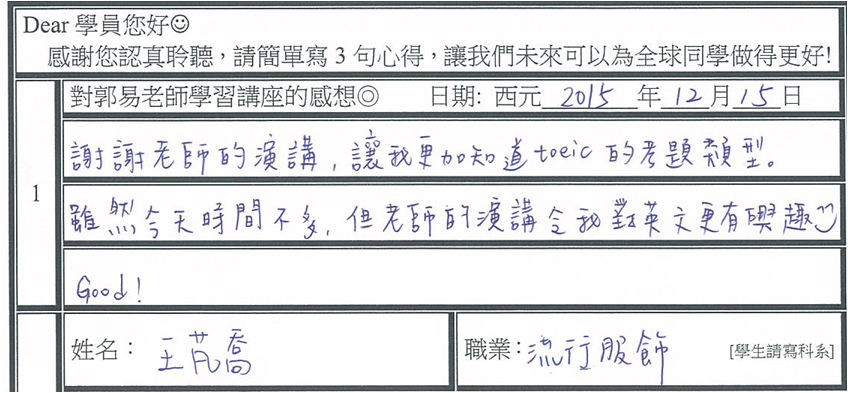 Dear 學員您好☺
感謝您認真聆聽，請簡單寫 3 句心得，讓我們未來可以為全球同學做得更好!
對郭易老師學習講座的感想◎ 日期: 西元 2015 年 12 月 15 日
1
謝謝老師的演講，讓我更加知道toeic的考題類型。
雖然今天時間不多，但老師的演講令我對英文更有興趣
Good!
姓名： 王芃喬
職業：流行服飾 [學生請寫科系]